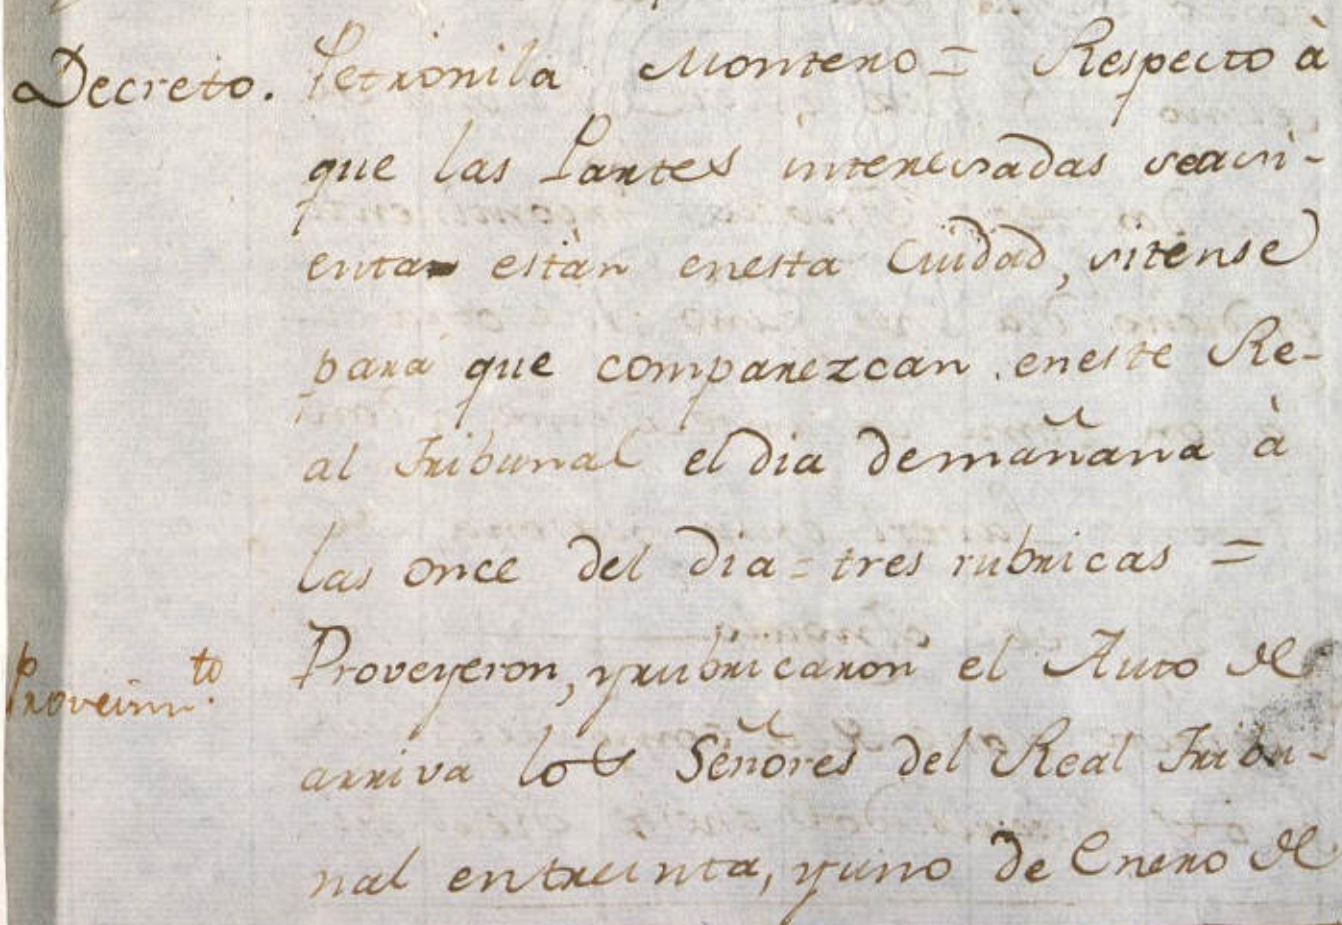 Decreto. Petronila Montero = Respecto à
que las Partes interesadas seausi-
entan estàn enesta Ciudad, sitense
para que comparezcan eneste Re-
al Tribunal el dia demañana à
las once del dia = tres rubricas =
Proveim.to Proveyeron, yrubricaron el Auto de
arriva los Señores del Real Tribu-
nal entreinta, yuno de Enero de